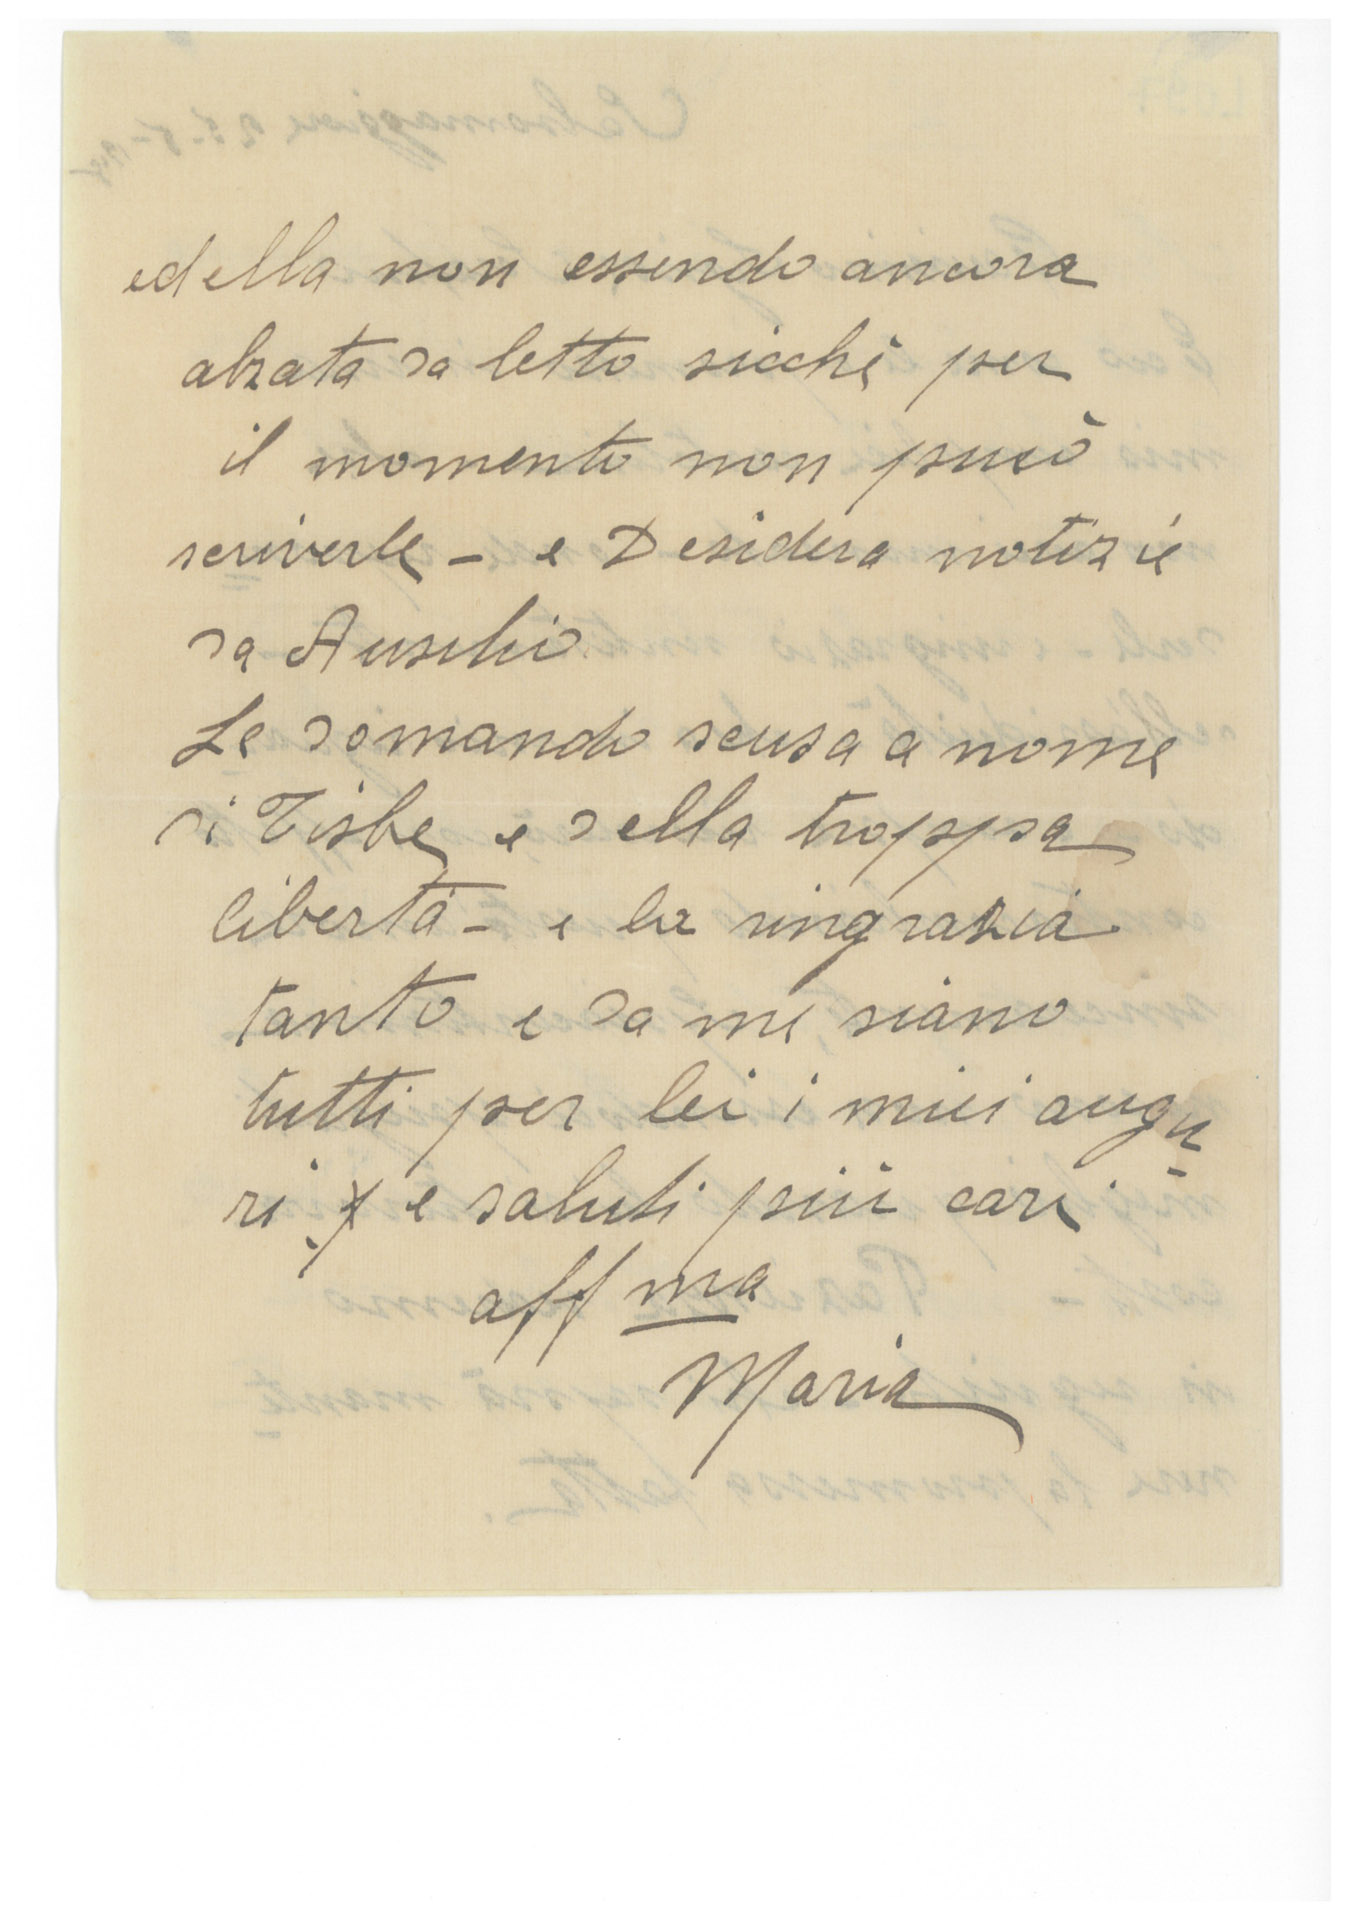 ed ella non essendo ancora
alzata da letto sicchè per
il momento non può
scriverle - e Desidera notizie
da Ausilio.
Le domando scusa a nome
di Tisbe e della troppa
libertà - e la ringrazia
tanto e da me siano
tutti per lei i miei augu
ri e saluti più cari
aff ma
Maria